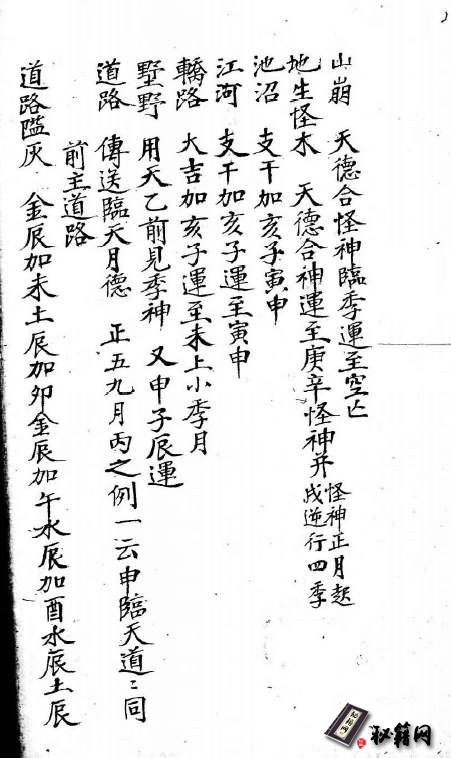 山崩　天德合怪神臨季運至空亡
地生怪木　天德合神運至庚辛怪神并怪神正月起戌逆行四季
池沼　支干加亥子寅申
江河　支干加亥子運至寅申
轎路　大吉加亥子運至未上小季月
墅野　用天乙前見季神　又申子辰運
道路　傳送臨天月德　正五九月丙之例一云申臨天道〻同
前主道路
道路瘟灰　金辰加未土辰加卯金辰加午水辰加酉水辰土辰
秘籍网